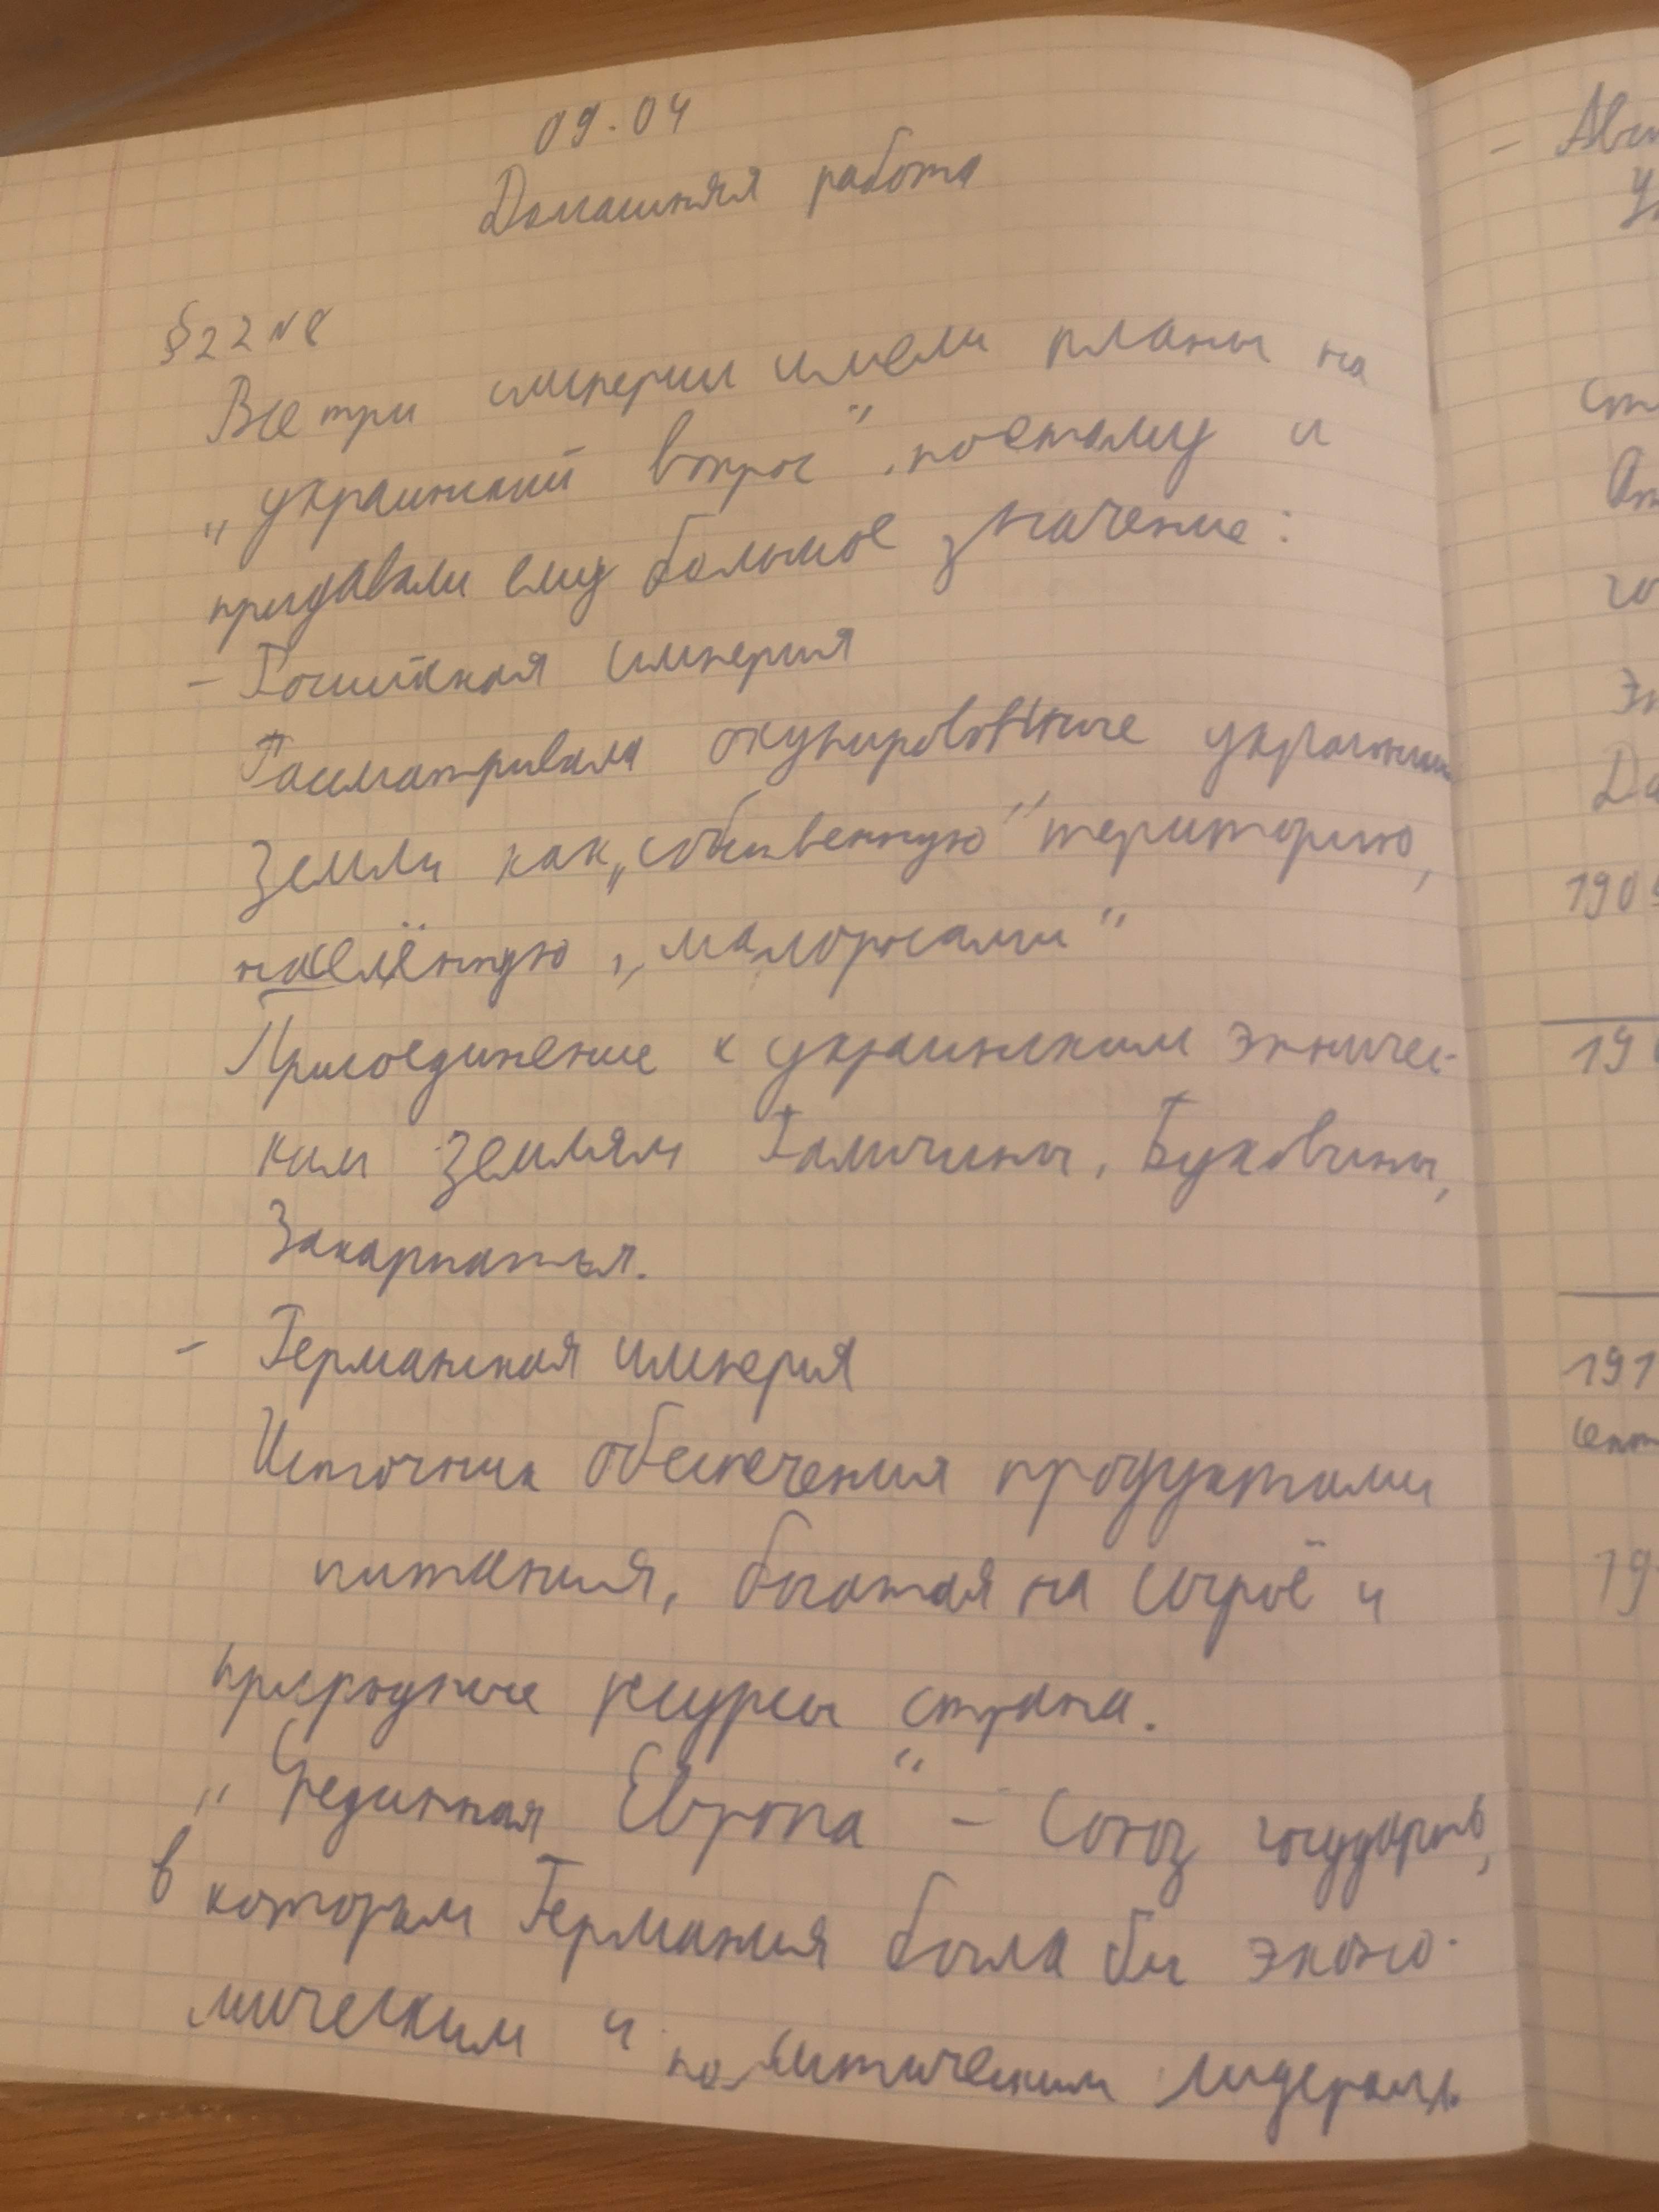 09.04
Домашняя работа
§22 №8
Все три империи имели планы на
„украинский вопрос", поетому и
придавали ему большое значение:
- Российская империя
Рассматривала окупированные украинские
земли как „собственную" територию,
населённую „малоросами"
Присоединение к украинским этничес-
ким землям Галичины, Буковины,
Закарпатья.
- Германская империя
Источник обеспечения продуктами
питания, богатая на сырьё и
природные ресурсы страна.
„Срединная Европа" - Союз государств,
в которым Германия была бы эконо-
мическим и политическим лидером.
-
190
19
191
19